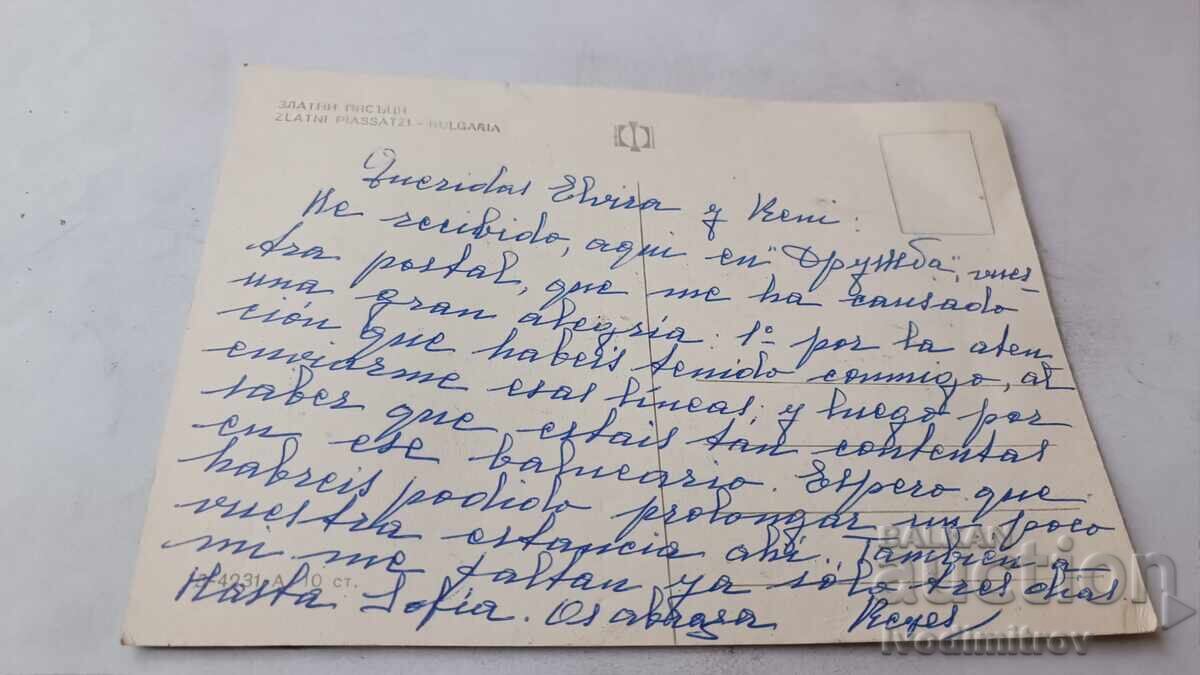 ЗЛАТНИ ПЯСЪЦИ
ZLATNI PIASSATZI - BULGARIA
Queridas Elvira y Reni:
He recibido, aqui en "Дружба", vues-
tra postal, que me ha causado
una gran alegría. 1º por la aten
ción que habeis tenido conmigo, al
enviarme esas líneas, y luego por
saber que estais tan contentas
en ese balneario. Espero que
habreis podido prolongar un poco
vuestra estancia ahí. Tambien a
mi me faltan ya sólo tres dias.
Hasta Sofia. Os abraza Reyes
4231-A 10 ст.
BALKAN
auction
Ivodimitrov